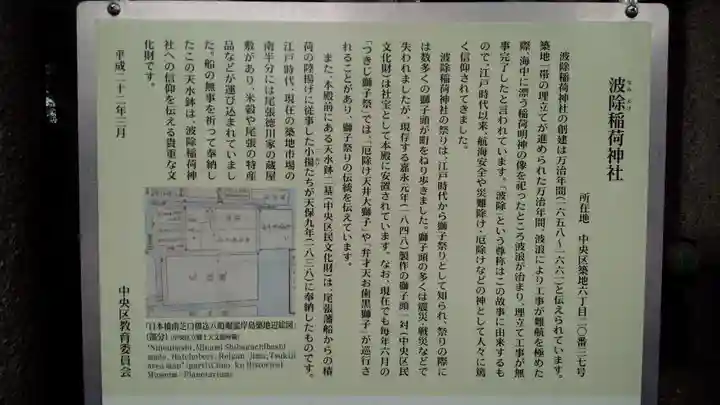 なみ よけ
波除稲荷神社
所在地 中央区築地六丁目二〇番三七号
波除稲荷神社の創建は万治年間(一六五八〜一六六一)と伝えられています。
築地一帯の埋立てが進められた万治年間、波浪により工事が難航を極めた
際、海中に漂う稲荷明神の像を祀ったところ波浪が治まり、埋立て工事が無
事完了したと言われています。「波除」という尊称はこの故事に由来するも
ので、江戸時代以来、航海安全や災難除け・厄除けなどの神として人々に篤
く信仰されてきました。
波除稲荷神社の祭りは、江戸時代から獅子祭りとして知られ、祭りの際に
は数多くの獅子頭が町をねり歩きました。獅子頭の多くは震災・戦災などで
失われましたが、現存する嘉永元年(一八四八)製作の獅子頭一対(中央区民
文化財)は社宝として本殿に安置されています。なお、現在でも毎年六月の
「つきじ獅子祭」では、「厄除け天井大獅子」や「弁才天お歯黒獅子」が巡行さ
れることがあり、獅子祭りの伝統を伝えています。
また、本殿前にある天水鉢二基(中央区民文化財)は、尾張藩船からの積
荷の陸揚げに従事した小揚たちが天保九年(一八三八)に奉納したものです。
江戸時代、現在の築地市場の
南半分には尾張徳川家の蔵屋
敷があり、米穀や尾張の特産
品などが運び込まれていまし
た。船の無事を祈って奉納し
たこの天水鉢は、波除稲荷神
社への信仰を伝える貴重な文
化財です。
平成二十二年三月
中央区教育委員会
「日本橋南芝口橋迄八町堀霊岸島築地辺絵図」
(部分)(中央区立郷土天文館所蔵)
"Nihonbashi, Minami Shibaguchibashi
made, Hatchobori, Reigan Jima, Tsukiji
area map" (parts) Chuo-ku Historical
Museum Planetarium